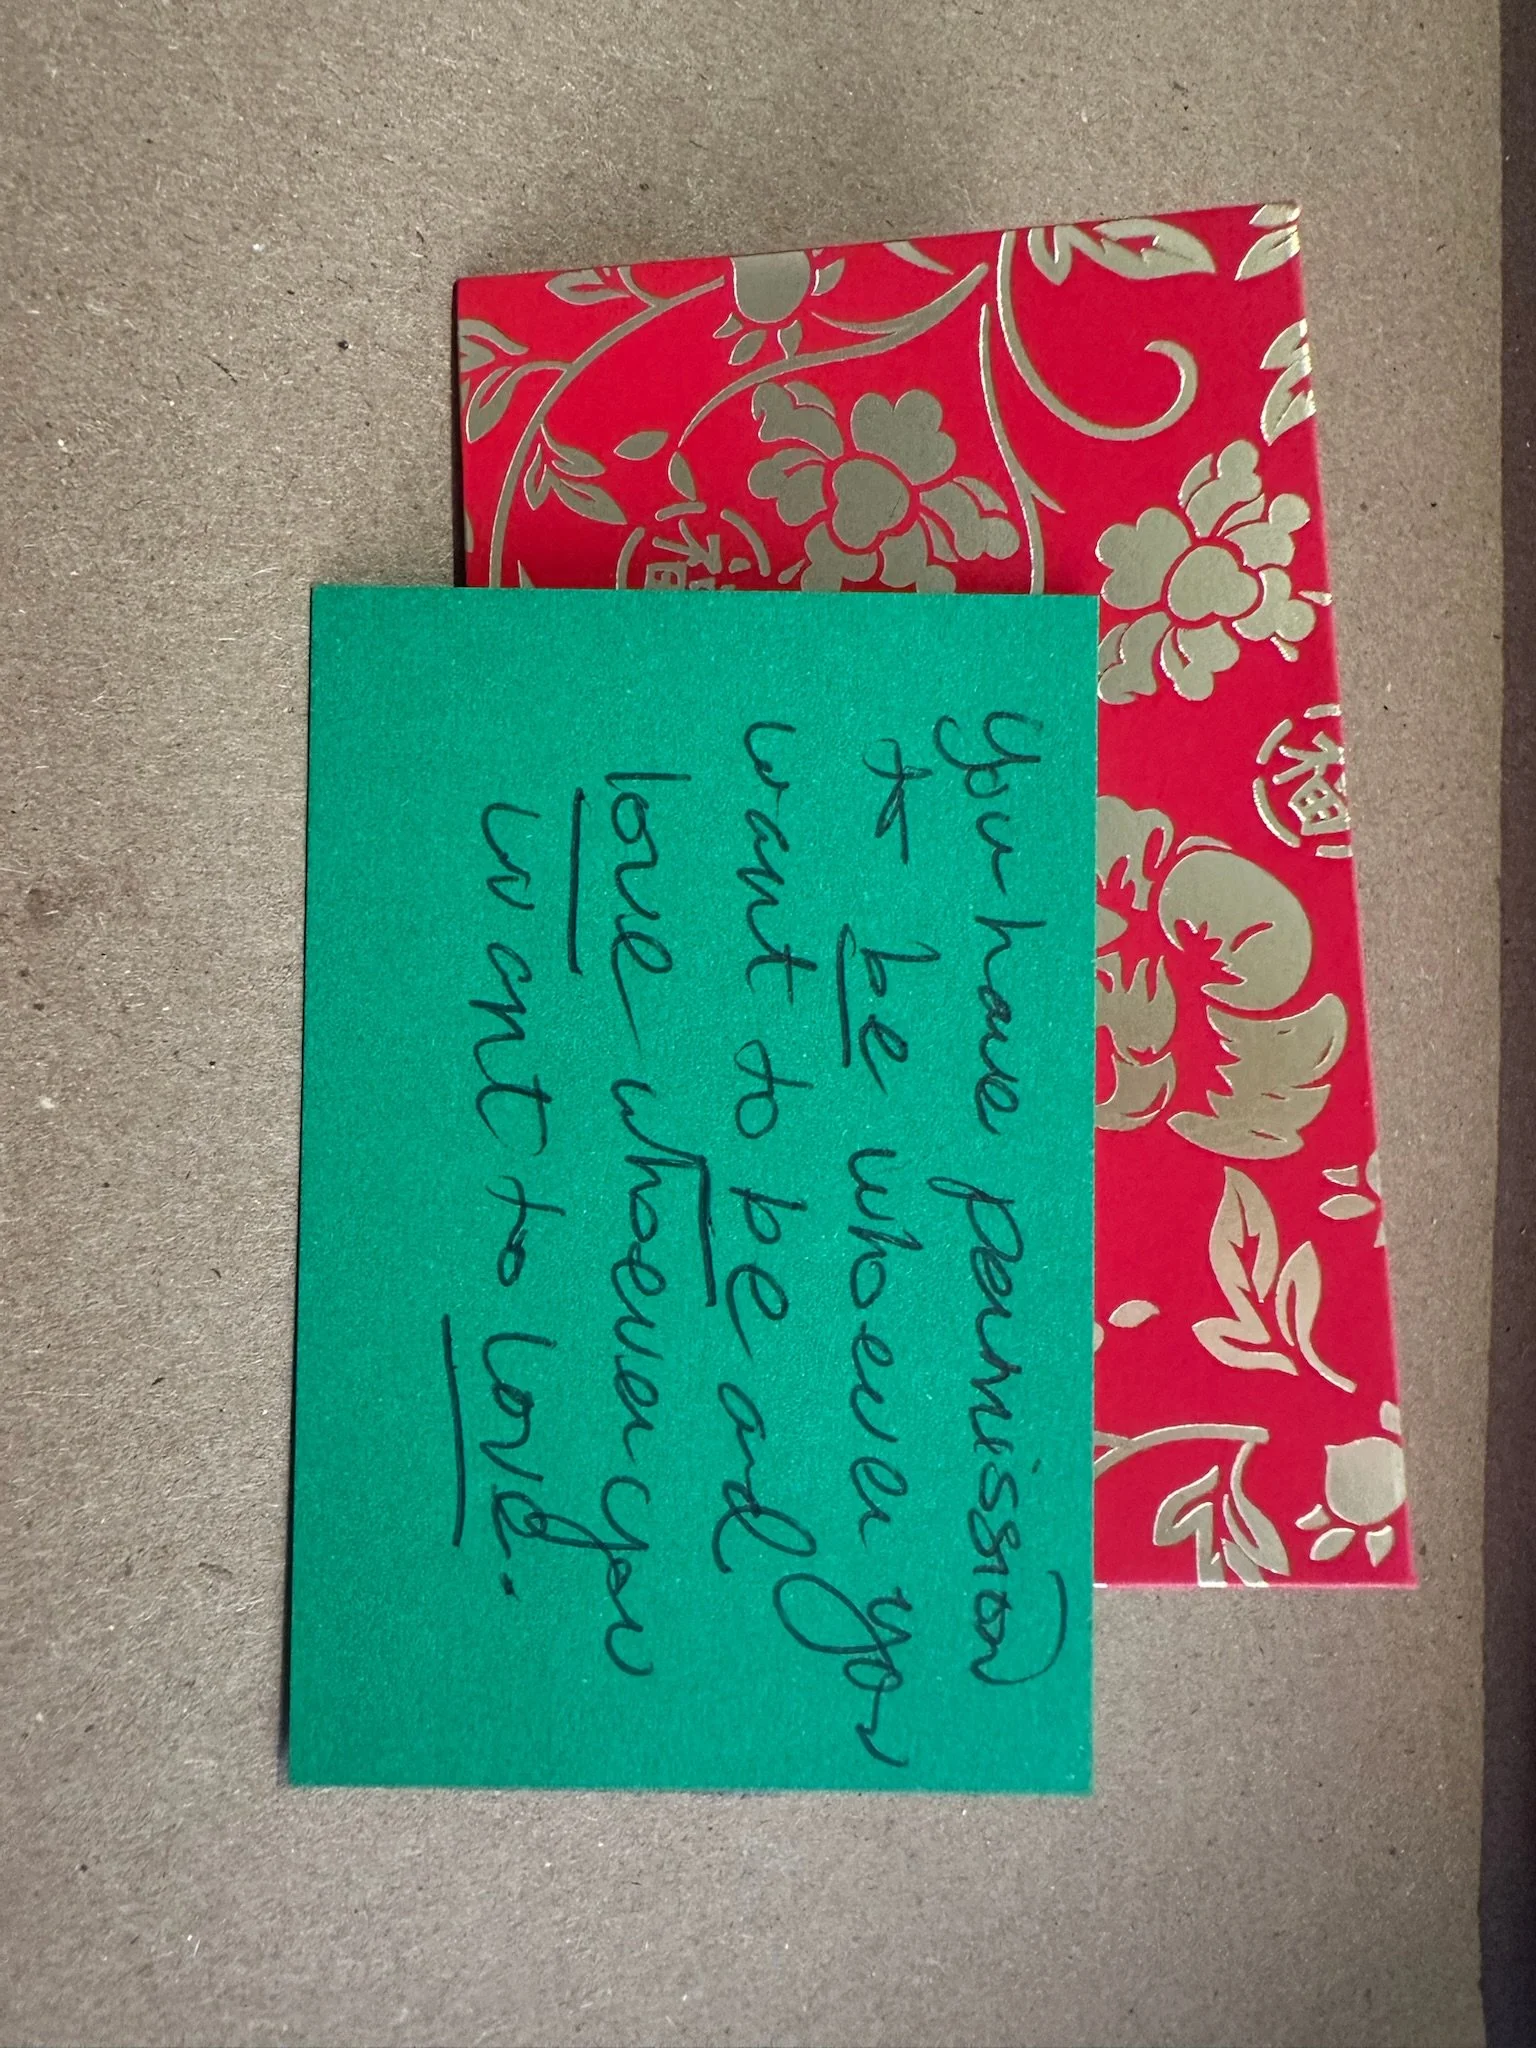 You have permission
to be whoever you
want to be and
love whoever you
want to love.
福
福